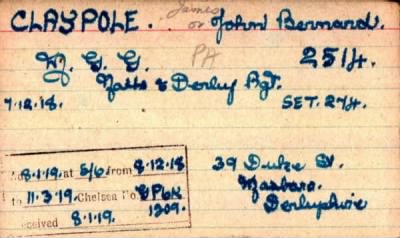 CLAYPOLE. James or John Bernard.
PA 2514.
Notts & Derby Rgt.
7.12.18. SET. 274.
8.1.19. at 5/6 from 8.12.18
to 11.3.19. Chelsea No. 8/P6K
1309.
eceived 8.1.19.
39 Duke St.
Masboro.
Derbyshire